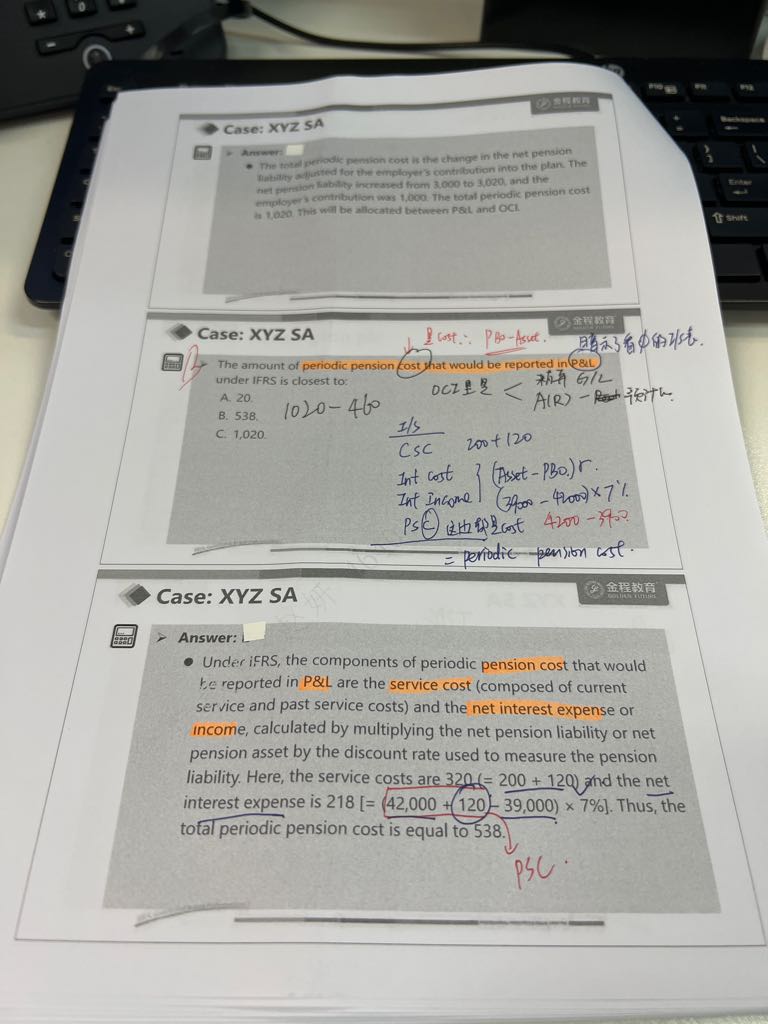 金程教育
Case: XYZ SA
➢ Answer:
● The total periodic pension cost is the change in the net pension
liability adjusted for the employer's contribution into the plan. The
net pension liability increased from 3,000 to 3,020, and the
employer's contribution was 1,000. The total periodic pension cost
is 1,020. This will be allocated between P&L and OCI.
金程教育
GOLDEN FUTURE
Case: XYZ SA
是cost∴ PBO-Asset.
B
The amount of periodic pension cost that would be reported in P&L
under IFRS is closest to:
A. 20.
B. 538.
C. 1,020.
1020-460
OCI里是 <
G/L
A(R) -
I/S
CSC 200+120
Int cost
Int Income
(Asset-PBO)r.
(39000-42000)×7%
PSC
cost
4200-3900
= periodic pension cost.
金程教育
GOLDEN FUTURE
Case: XYZ SA
➢ Answer:
● Under IFRS, the components of periodic pension cost that would
be reported in P&L are the service cost (composed of current
service and past service costs) and the net interest expense or
income, calculated by multiplying the net pension liability or net
pension asset by the discount rate used to measure the pension
liability. Here, the service costs are 320 (= 200 + 120) and the net
interest expense is 218 [= (42,000 + 120 – 39,000) × 7%]. Thus, the
total periodic pension cost is equal to 538.
PSC.
F10
F11
F12
Backspace
Enter
Shift